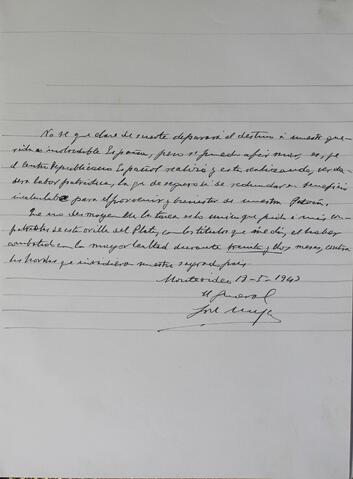 No sé que clase de suerte deparará el destino á nuestra que-
rida e inolvidable España, pero sí puedo afirmar es, que
el Centro Republicano Español realizó y está realizando, verda-
dera labor patriótica, la que de seguro ha de redundar en beneficio
incalculable para el porvenir y bienestar de nuestra Patria.
Que no desmayen en la tarea es lo único que pido a mis com-
patriotas de esta orilla del Plata, con los títulos que me dá, el haber
combatido con la mayor lealtad durante treinta y dos meses, contra
las hordas que invadieron nuestro sagrado país.
Montevideo 13-5-1943
El General
José